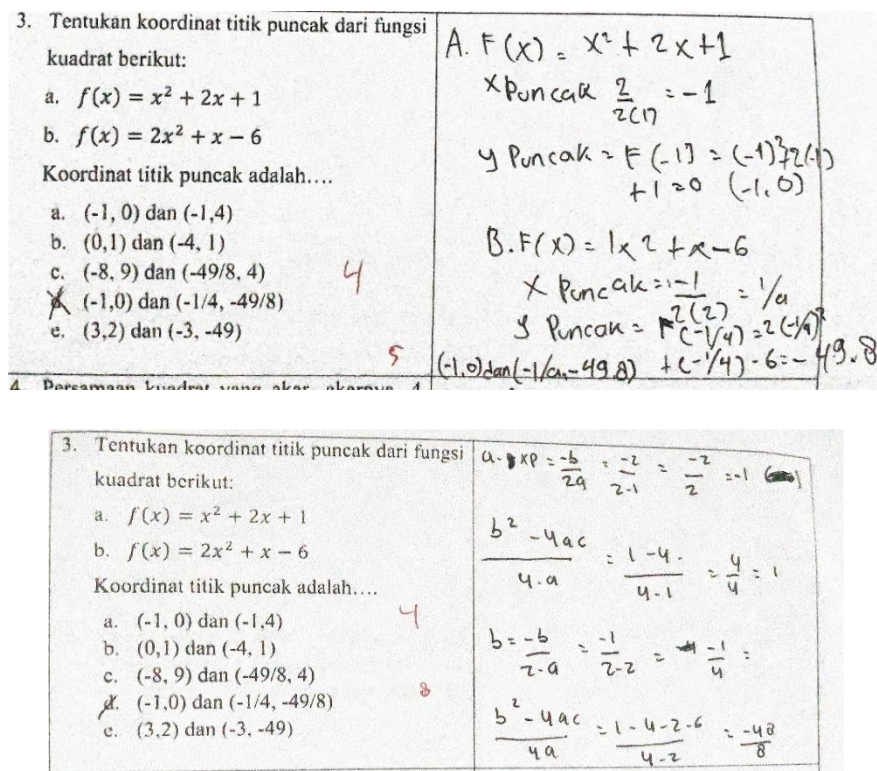 3. Tentukan koordinat titik puncak dari fungsi
kuadrat berikut:
a. f(x) = x² + 2x + 1
b. f(x) = 2x² + x − 6
Koordinat titik puncak adalah….
a. (-1, 0) dan (-1,4)
b. (0,1) dan (-4, 1)
c. (-8, 9) dan (-49/8, 4)
d. (-1,0) dan (-1/4, -49/8)
e. (3,2) dan (-3, -49)
4
5
A. F(x) = x² + 2x+1
x Puncak 2/2(1) = -1
y Puncak = F(-1) = (-1)²+2(-1)
+1=0 (-1,0)
B. F(x) = 1x2 +x-6
x Puncak = -1/2(2) = 1/a
y Puncak = F(-1/4) = 2(-1/4)²
(-1,0) dan (-1/a, -49.8) +(-1/4) - 6 = -49.8
4. Persamaan kuadrat yang akar akarnya 4
3. Tentukan koordinat titik puncak dari fungsi
kuadrat berikut:
a. f(x) = x² + 2x + 1
b. f(x) = 2x² + x − 6
Koordinat titik puncak adalah….
a. (-1, 0) dan (-1,4)
b. (0,1) dan (-4, 1)
c. (-8, 9) dan (-49/8, 4)
d. (-1,0) dan (-1/4, -49/8)
e. (3,2) dan (-3, -49)
4
8
a. xp = -b/2a = -2/2-1 = -2/2 = -1
b² - 4ac/4.a = 1-4./4-1 = 4/4 = 1
b = -b/2-a = -1/2-2 = -1/4 =
b² - 4ac/4a = 1-4-2-6/4-2 = -48/8